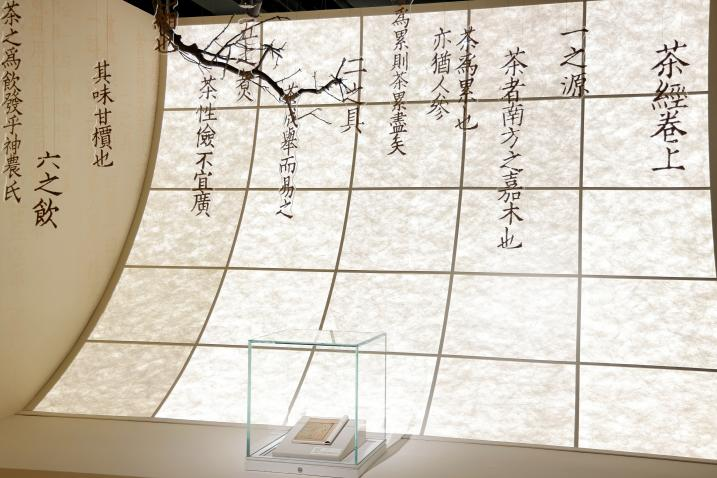 茶經卷上
一之源
茶者南方之嘉木也
茶為累也
亦猶人參
為累則茶累盡矣
二之具
茂舉而易之
五之煮
茶性儉不宜廣
也
其味甘檟也
六之飲
茶之爲飲發乎神農氏